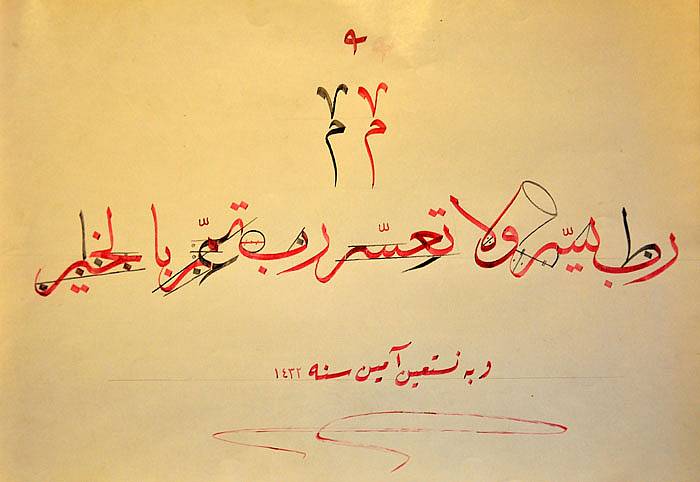 رب يسّر ولا تعسّر رب تمّم بالخير
و به نستعين آمين سنه ١٤٣٢